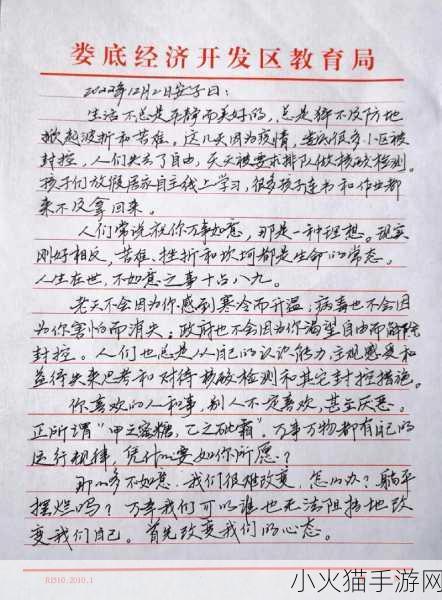 娄底经济开发区教育局
2022年12月2日安子曰：
生活不总是平静而美好的，总是猝不及防地
掀起波折和苦难。这几天因为疫情，娄底很多小区被
封控，人们失去了自由，天天被要求排队做核酸检测。
孩子们放假居家自主线上学习，很多孩子连书和作业都
来不及拿回来。
人们常说祝你万事如意，那是一种理想。现实
刚好相反，苦难、挫折和坎坷都是生命的常态。
人生在世，不如意之事十占八九。
老天不会因为你感到寒冷而升温；病毒也不会因
为你害怕而消失；政府也不会因为你渴望自由而解除
封控。人们也总是从自己的认识能力、主观感受和
益得失来思考和对待核酸检测和其它封控措施。
你喜欢的人和事，别人不一定喜欢，甚至厌恶。
正所谓“甲之蜜糖，乙之砒霜”。万事万物都有自己的
运行规律，凭什么要如你所愿？
那么多不如意，我们很难改变，怎么办？躺平
摆烂吗？万幸我们可以谁也无法阻挡地改
变我们自己。首先改变我们的心态。
RI510.2010.1
小火猫手游网